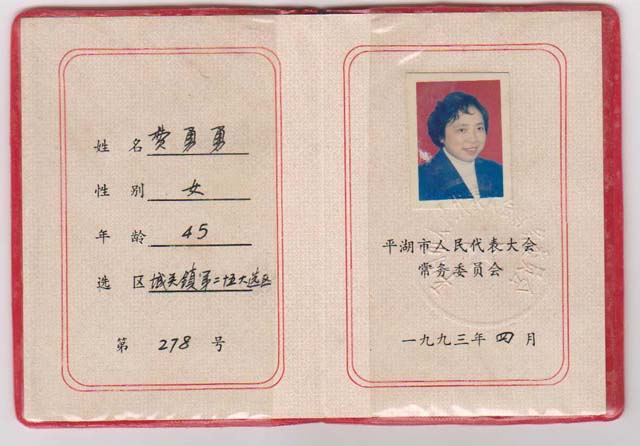 姓 名 费勇勇
性 别 女
年 龄 45
选 区 城关镇第二十五大选区
第 278 号
平湖市人民代表大会
常务委员会
一九九三年 四 月